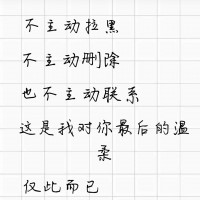 不主动拉黑
不主动删除
也不主动联系
这是我对你最后的温
柔
仅此而已